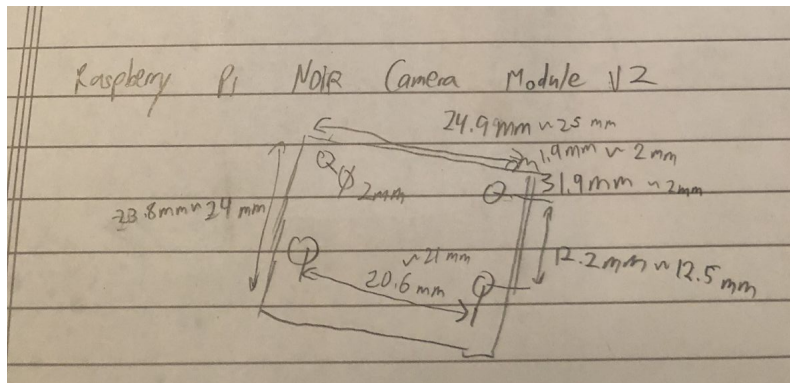 Raspberry Pi NoIR Camera Module V2
24.9mm ~ 25 mm
1.9mm ~ 2mm
Ø 2mm
31.9mm ~ 2mm
23.8mm ~ 24 mm
~21mm
20.6mm
12.2mm ~ 12.5mm